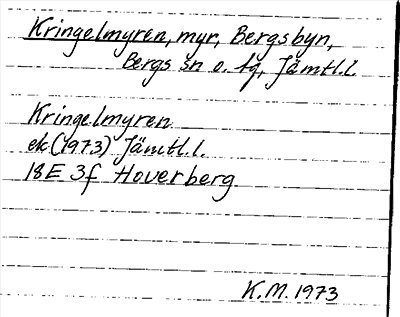 Kringelmyren, myr, Bergsbyn,
Bergs sn o. tg, Jämtl.l.
Kringelmyren
ek (1973) Jämtl.l.
18E 3f Hoverberg
K.M. 1973